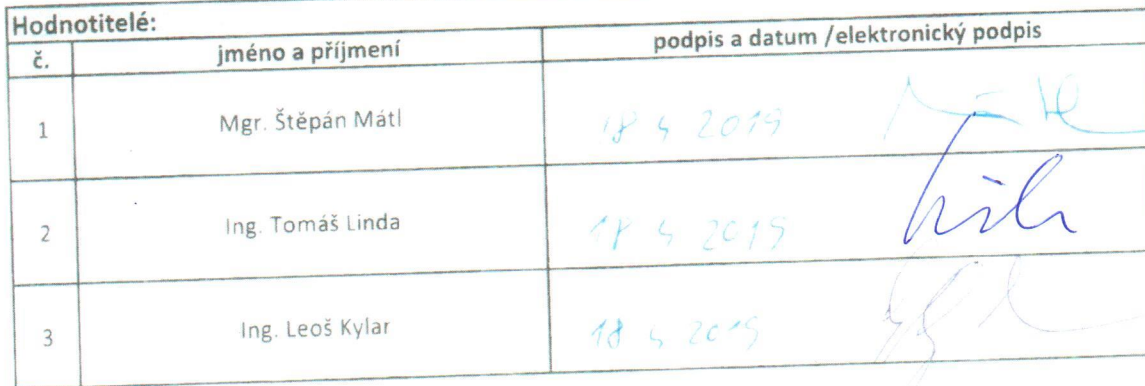 Hodnotitelé:
č. jméno a příjmení podpis a datum /elektronický podpis
1 Mgr. Štěpán Mátl 18 4 2019
2 Ing. Tomáš Linda 18 4 2019
3 Ing. Leoš Kylar 18 4 2019